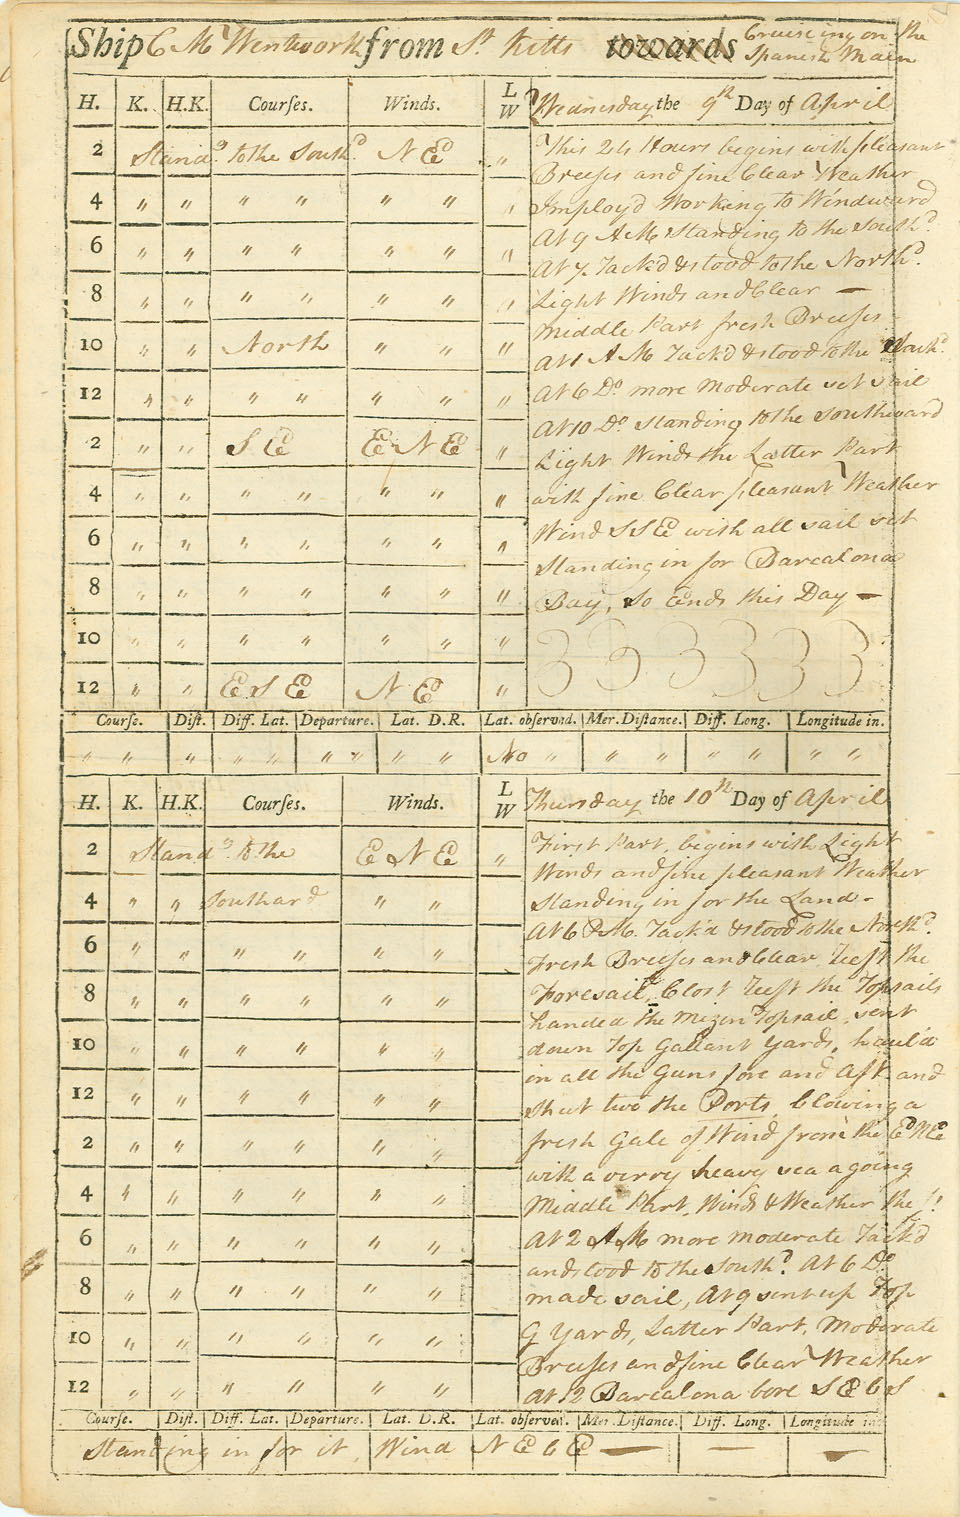 Ship C M Wentworth from St Kitts towards Cruiseing on the
Spanish Main
H. K. H.K. Courses. Winds. L W Wednesday the 9th Day of April
2 Standg. to the Southd. N Ed "
4 " " " " " " "
6 " " " " " " "
8 " " " " " " "
10 " " North " " "
12 " " " " " " "
2 " " S E E N E "
4 " " " " " " "
6 " " " " " " "
8 " " " " " " "
10 " " " " " " "
12 " " E S E N E "
This 24 Hours begins with pleasant
Breeses and fine Clear Weather
Imployd Working to Windward
At 9 A M Standing to the Southd.
At 7 Tack'd & stood to the Northd.
Light Winds and Clear —
Middle Part fresh Breeses
At 1 A M Tack'd & stood to the
At 6 Do. more Moderate set Sail
At 10 Do. Standing to the Southward
Light Winds the Latter Part
with fine Clear pleasant Weather
Wind S S E with all sail set
Standing in for Barcalona
Bay, So Ends this Day —
3 3 3 3 3 3
Course. Dist. Diff. Lat. Departure. Lat. D.R. Lat. observed. Mer. Distance. Diff. Long. Longitude in.
" " " " " " " " " No " " " " " " "
H. K. H.K. Courses. Winds. L W Thursday the 10th Day of April
2 Standg. to the E N E "
4 " " Southard " "
6 " " " " " "
8 " " " " " "
10 " " " " " "
12 " " " " " "
2 " " " " " "
4 " " " " " "
6 " " " " " "
8 " " " " " "
10 " " " " " "
12 " " " " " "
First Part, begins with Light
Winds and fine pleasant Weather
Standing in for the Land -
At 6 P M. Tack'd & stood to the Northd.
Fresh Breeses and Clear, Reeft the
Foresail, & Clost Reeft the Topsails
handed the Mizen Topsail, sent
down Top Gallant Yards, hauld
in all the Guns fore and Aft and
Shut two the Ports, blowing a
fresh Gale of Wind from the Ed NE
with a verry heavy sea a going
Middle Part, Winds & Weather the
At 2 A M more Moderate Tack'd
and stood to the Southd. At 6 Do
made sail, At 9 sent up Top
G Yards, Latter Part, Moderate
Breeses and fine Clear Weather
At 12 Barcalona bore S E b S
Course. Dist. Diff. Lat. Departure. Lat. D.R. Lat. observed. Mer. Distance. Diff. Long. Longitude in.
Standing in for it, Wind N E b E — — —